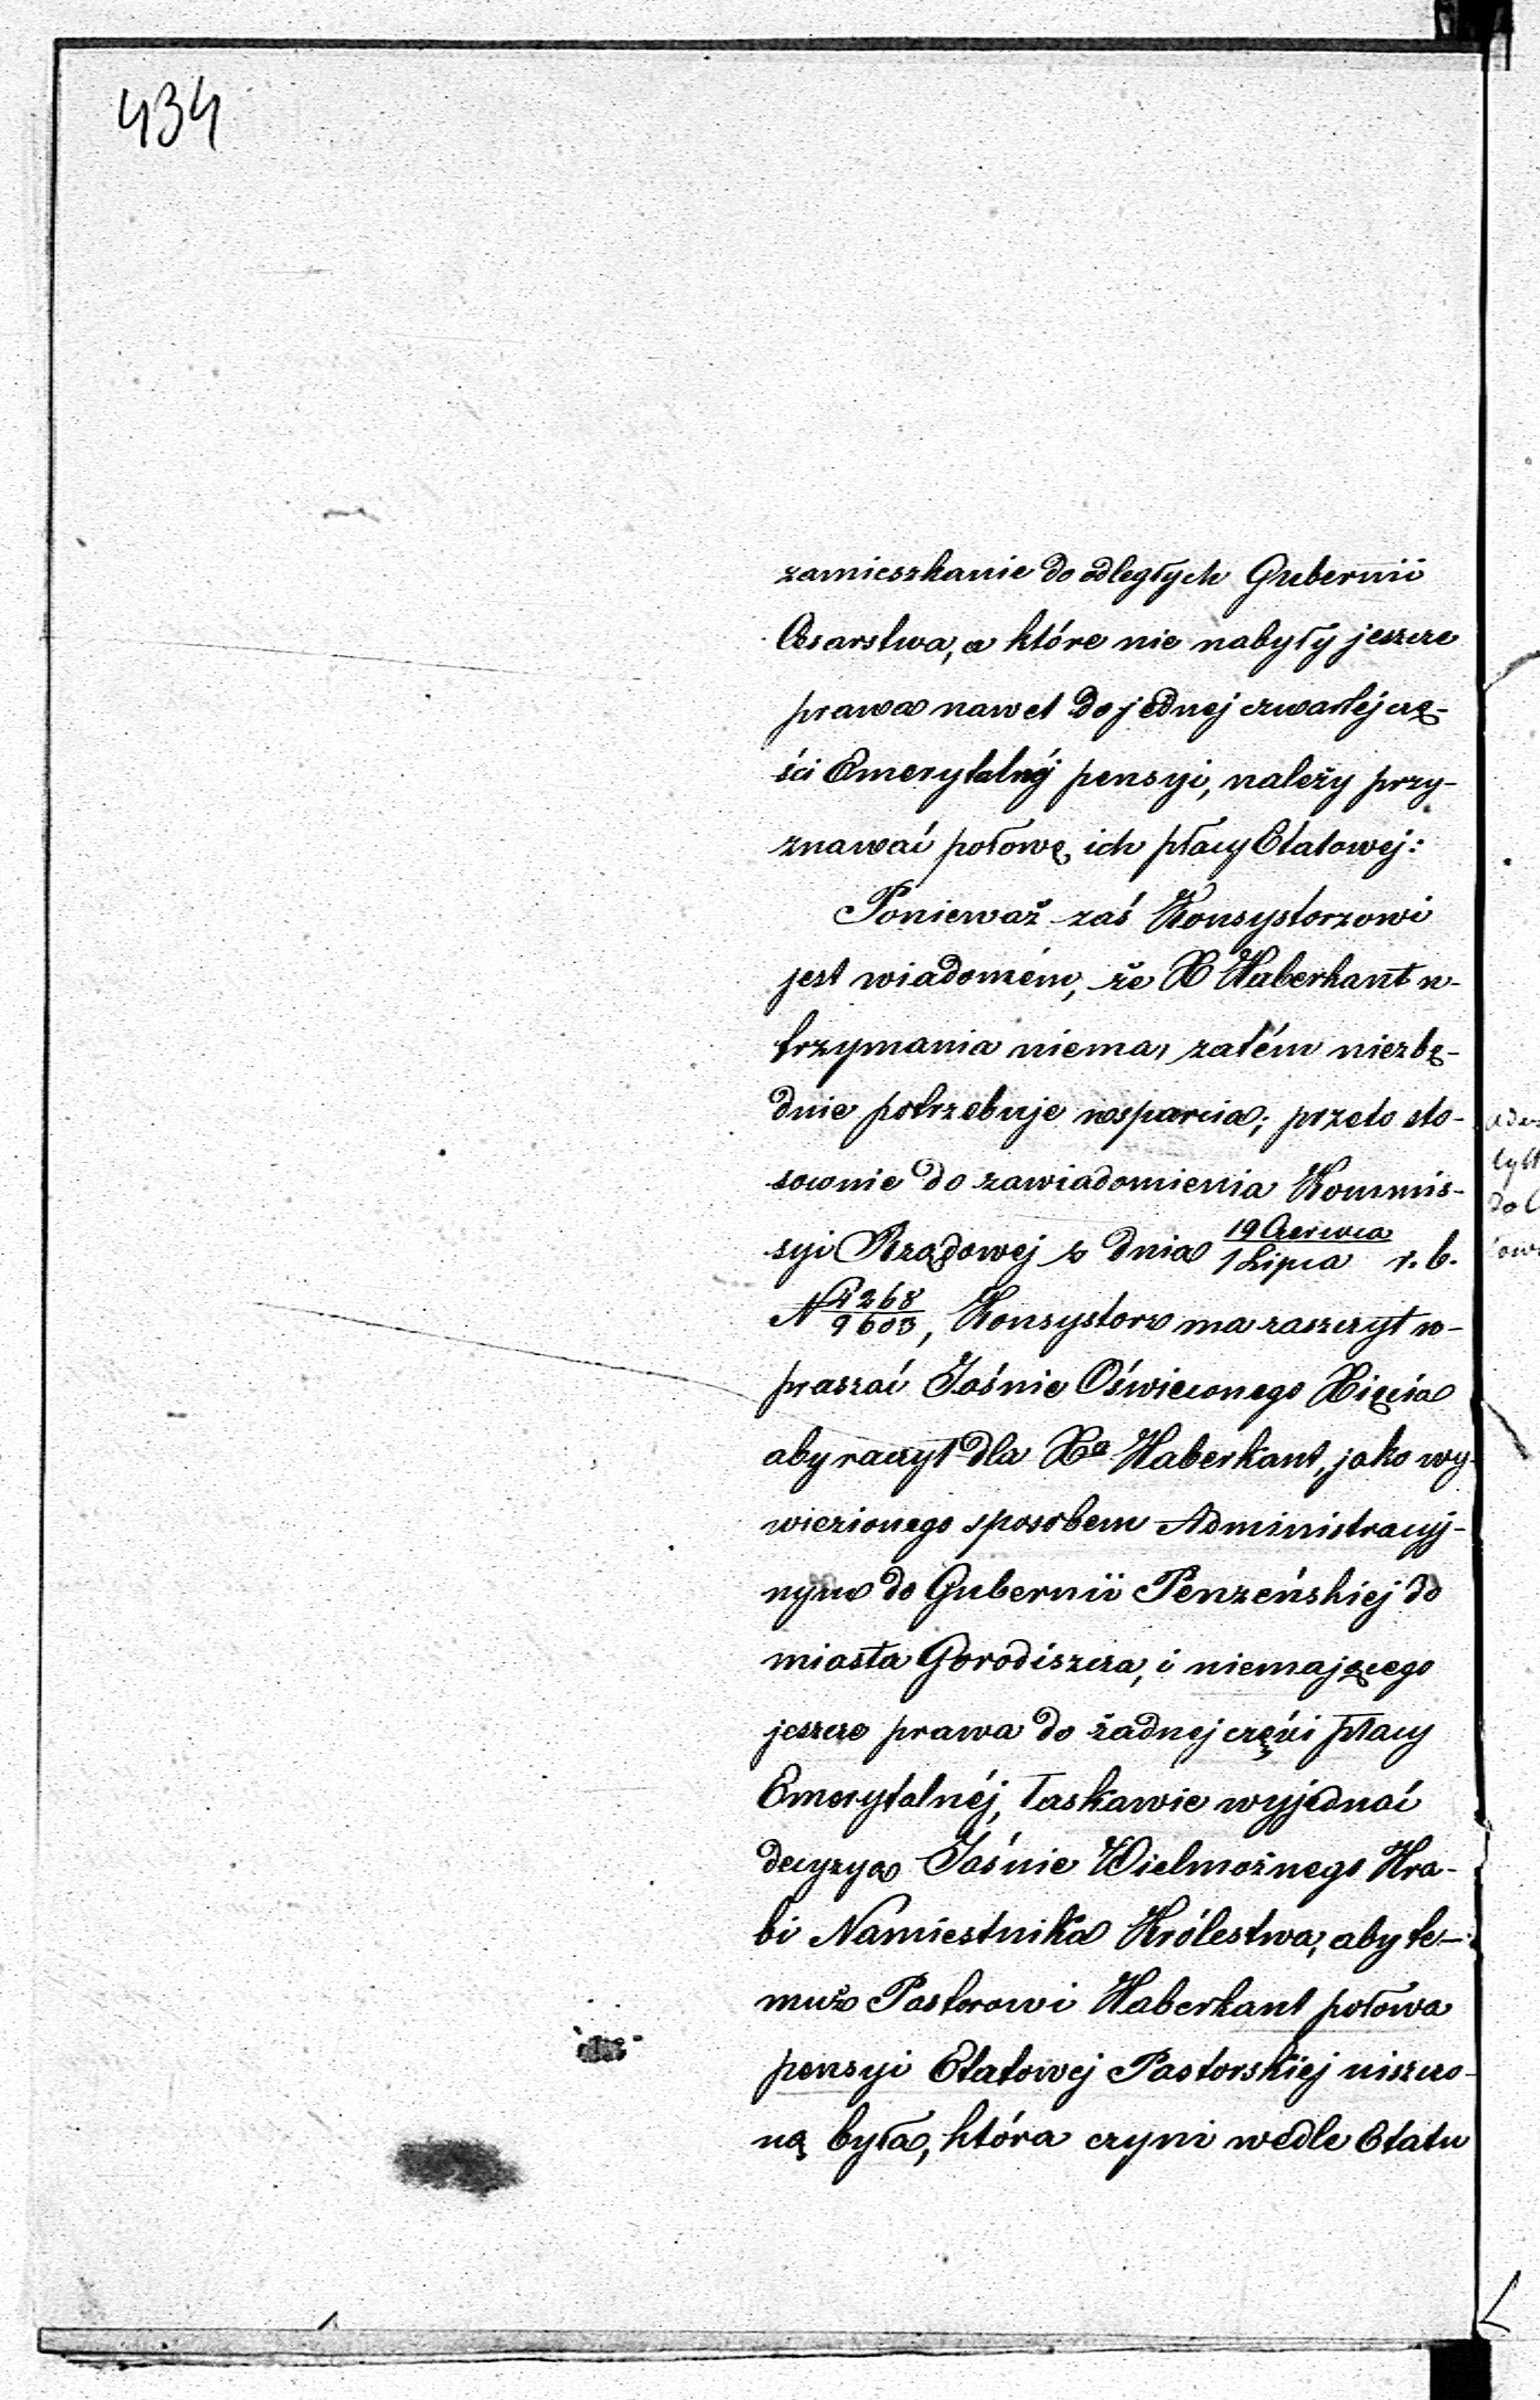 434
zamieszkanie do odległych Gubernii
Cesarstwa, a które nie nabyły jeszcze
prawa nawet do jednej czwartej czę-
ści Emerytalnéj pensyi, należy przy-
znawać połowę ich płacy Etatowej:
Ponieważ zaś Konsystorzowi
jest wiadomém, że X Haberkant u-
trzymania niema, zatém niezbę-
dnie potrzebuje wsparcia; przeto sto-
sownie do zawiadomienia Kommis-
syi Rządowej z dnia 19 Czerwca / 1 Lipca r. b.
N 4268/9603, Konsystorz ma zaszczyt u-
praszać Jaśnie Oświeconego Xięcia
aby raczył dla Xa Haberkant, jako wy-
wiezionego sposobem Administracyj-
nym do Gubernii Penzeńskiej do
miasta Gorodiszcza, i niemającego
jeszcze prawa do żadnej części płacy
Emerytalnéj, łaskawie wyjednać
decyzya Jaśnie Wielmożnego Hra-
bi Namiestnika Królestwa, aby te-
muż Pastorowi Haberkant połowa
pensyi Etatowej Pastorskiej niszczo-
ną była, która czyni wedle Etatu